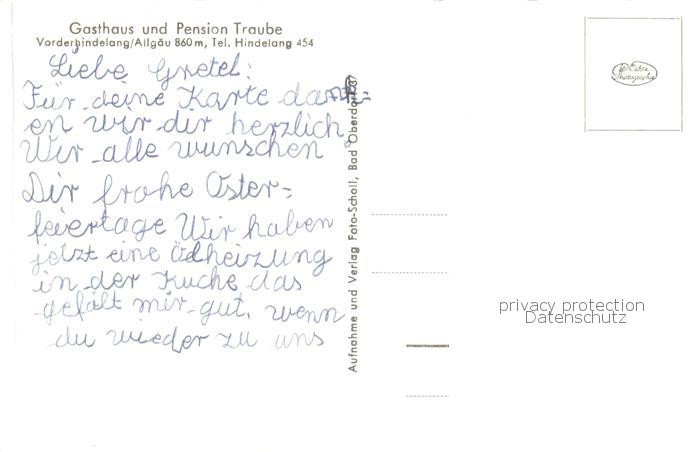 Gasthaus und Pension Traube
Vorderhindelang/Allgäu 860 m, Tel. Hindelang 454
Liebe Gretel!
Für deine Karte dank=
en wir dir herzlich.
Wir alle wunschen
Dir frohe Oster=
feiertage Wir haben
jetzt eine Ödheizung
in der Kuche das
gefält mir gut. wenn
du wieder zu uns
Aufnahme und Verlag Foto-Scholl, Bad Oberdorf 37
Echte
Photographie
privacy protection
Datenschutz